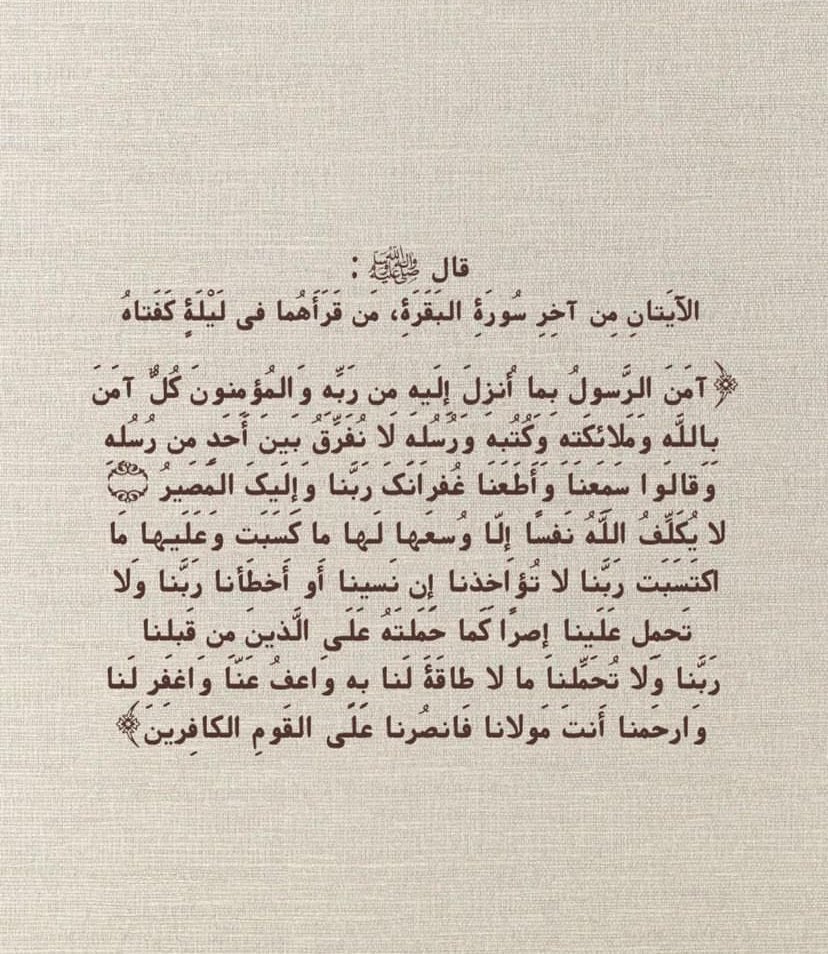 قال ﷺ :
الآيَتانِ مِن آخِرِ سُورَةِ البَقَرَةِ، مَن قَرَأَهُما فى لَيْلَةٍ كَفَتاهُ
﴿آمَنَ الرَّسولُ بِما أُنزِلَ إِلَيهِ مِن رَبِّهِ وَالمُؤمِنونَ كُلٌّ آمَنَ
بِاللَّهِ وَمَلائِكَتِهِ وَكُتُبِهِ وَرُسُلِهِ لا نُفَرِّقُ بَينَ أَحَدٍ مِن رُسُلِهِ
وَقالوا سَمِعنا وَأَطَعنا غُفرانَكَ رَبَّنا وَإِلَيكَ المَصيرُ
لا يُكَلِّفُ اللَّهُ نَفسًا إِلّا وُسعَها لَها ما كَسَبَت وَعَلَيها مَا
اكتَسَبَت رَبَّنا لا تُؤاخِذنا إِن نَسينا أَو أَخطَأنا رَبَّنا وَلا
تَحمِل عَلَينا إِصرًا كَما حَمَلتَهُ عَلَى الَّذينَ مِن قَبلِنا
رَبَّنا وَلا تُحَمِّلنا ما لا طاقَةَ لَنا بِهِ وَاعفُ عَنّا وَاغفِر لَنا
وَارحَمنا أَنتَ مَولانا فَانصُرنا عَلَى القَومِ الكافِرينَ﴾